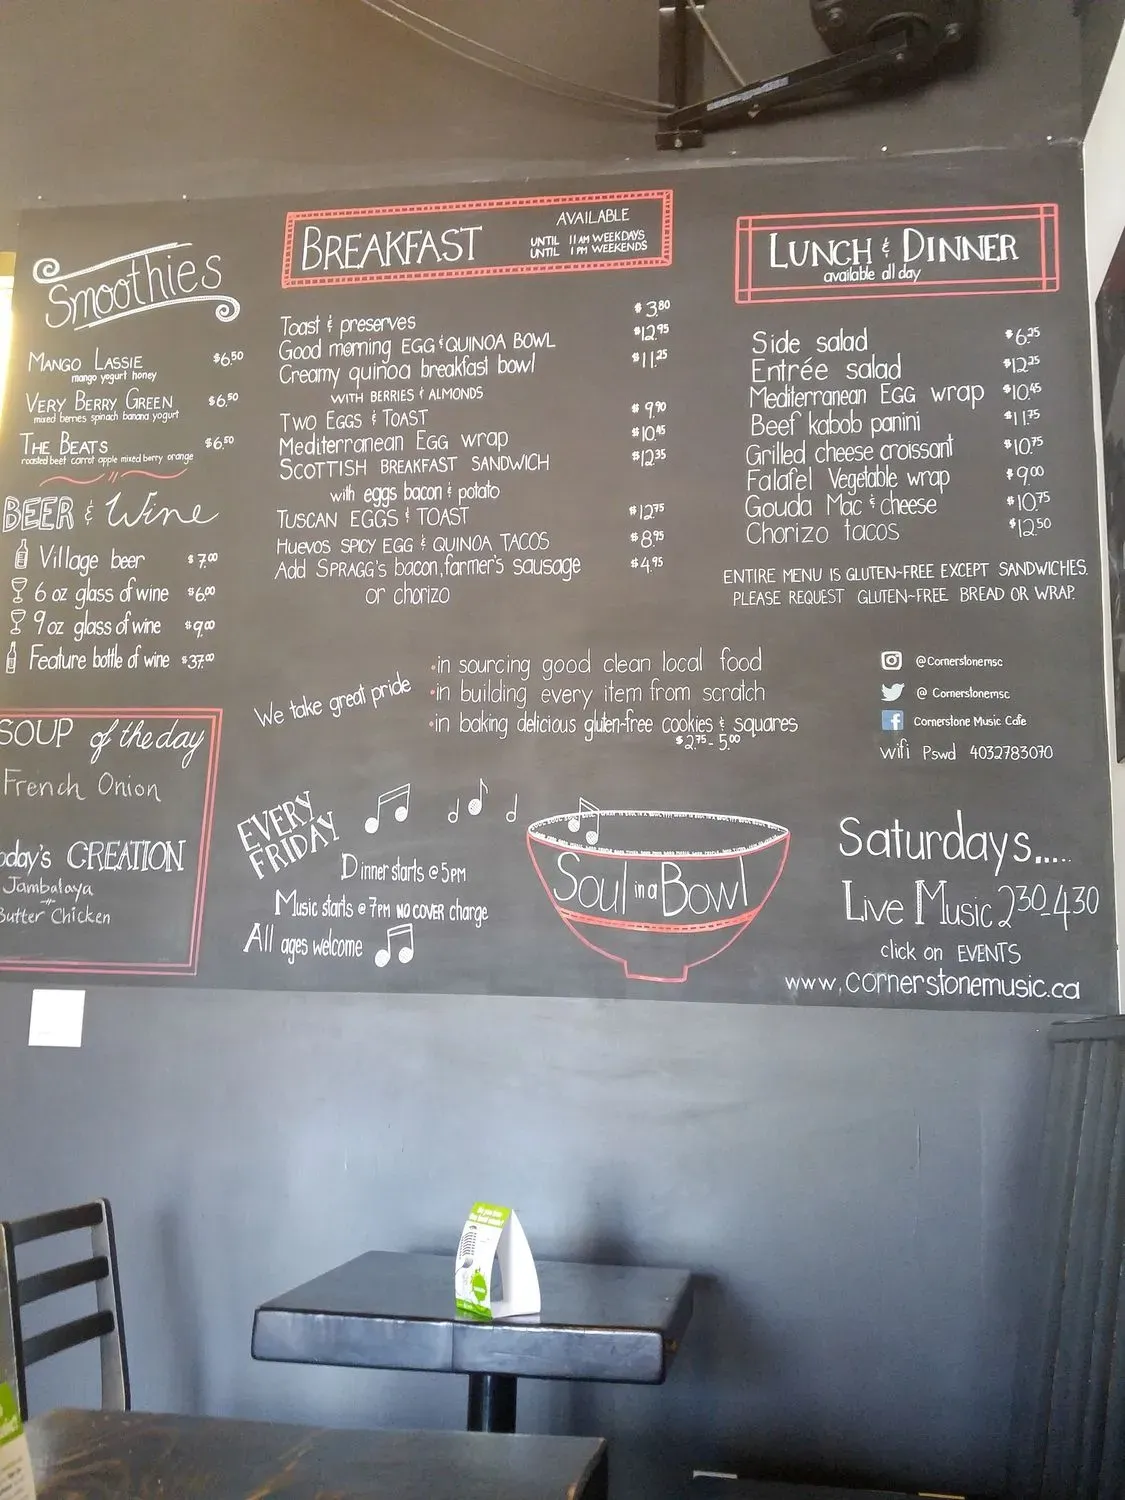 Smoothies
MANGO LASSIE $6.50
mango yogurt honey
VERY BERRY GREEN $6.50
mixed berries spinach banana yogurt
THE BEATS $6.50
roasted beet carrot apple mixed berry orange
BEER & Wine
Village beer $7.00
6 oz glass of wine $6.00
9 oz glass of wine $9.00
Feature bottle of wine $37.00
SOUP of the day
French Onion
oday's CREATION
Jambalaya
Butter Chicken
BREAKFAST
AVAILABLE
UNTIL 11 AM WEEKDAYS
UNTIL 1 PM WEEKENDS
Toast & preserves $3.80
Good morning EGG & QUINOA BOWL $12.95
Creamy quinoa breakfast bowl $11.25
WITH BERRIES & ALMONDS
TWO EGGS & TOAST $9.90
Mediterranean EGG wrap $10.45
SCOTTISH BREAKFAST SANDWICH $12.35
with eggs bacon & potato
TUSCAN EGGS & TOAST $12.75
HUEVOS SPICY EGG & QUINOA TACOS $8.95
Add SPRAGG'S bacon, farmer's sausage $4.95
or chorizo
LUNCH & DINNER
available all day
Side salad $6.25
Entrée salad $12.25
Mediterranean EGG wrap $10.45
Beef kabob panini $11.75
Grilled cheese croissant $10.75
Falafel Vegetable wrap $9.00
Gouda Mac & cheese $10.75
Chorizo tacos $12.50
ENTIRE MENU IS GLUTEN-FREE EXCEPT SANDWICHES.
PLEASE REQUEST GLUTEN-FREE BREAD OR WRAP.
We take great pride
•in sourcing good clean local food
•in building every item from scratch
•in baking delicious gluten-free cookies & squares
$2.75 - 5.00
@Cornerstonemsc
@ Cornerstonemsc
Cornerstone Music Cafe
wifi Pswd 4032783070
EVERY
FRIDAY
Dinner starts @ 5PM
Music starts @ 7PM NO COVER charge
All ages welcome
Soul in a Bowl
Saturdays.....
LIVE MUSIC 2:30-4:30
click on EVENTS
www.cornerstonemusic.ca